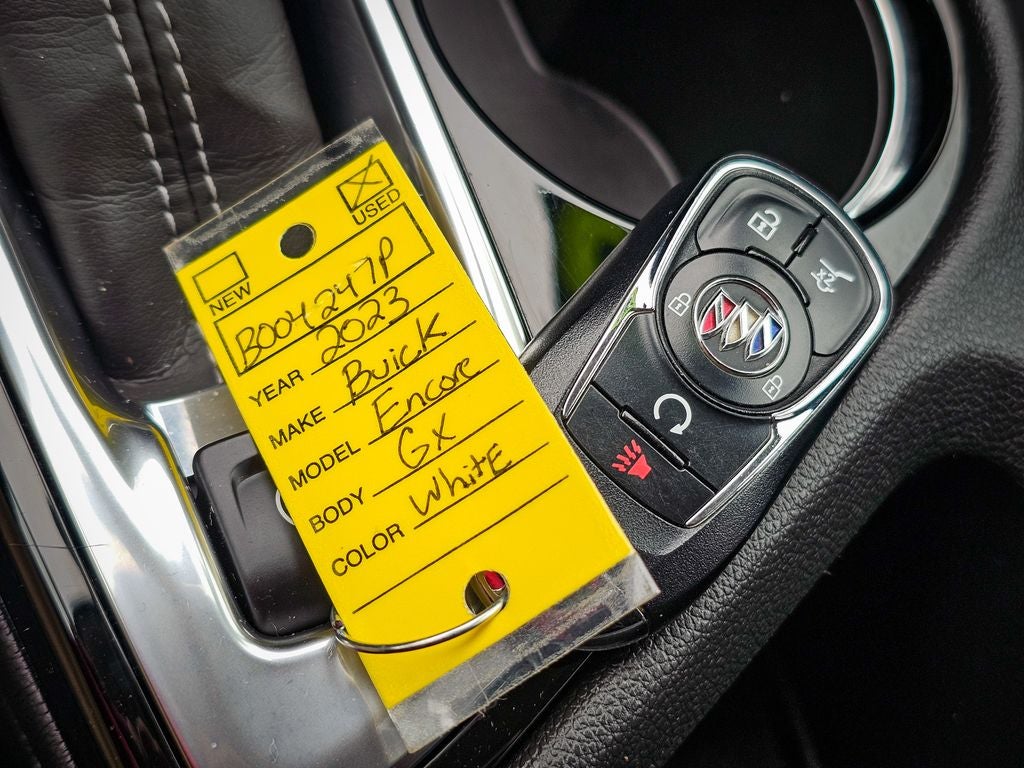 USED
NEW
B004247P
YEAR 2023
MAKE Buick
MODEL Encore
BODY GX
COLOR WhitE
X2